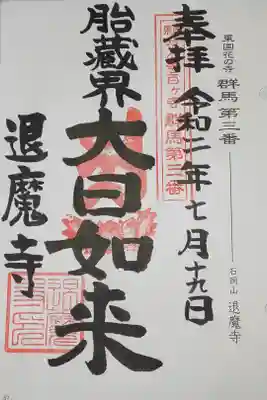 東国花の寺 群馬 第三番
石岡山 退魔寺
奉拝 令和二年七月十九日
胎蔵界
大日如来
退魔寺